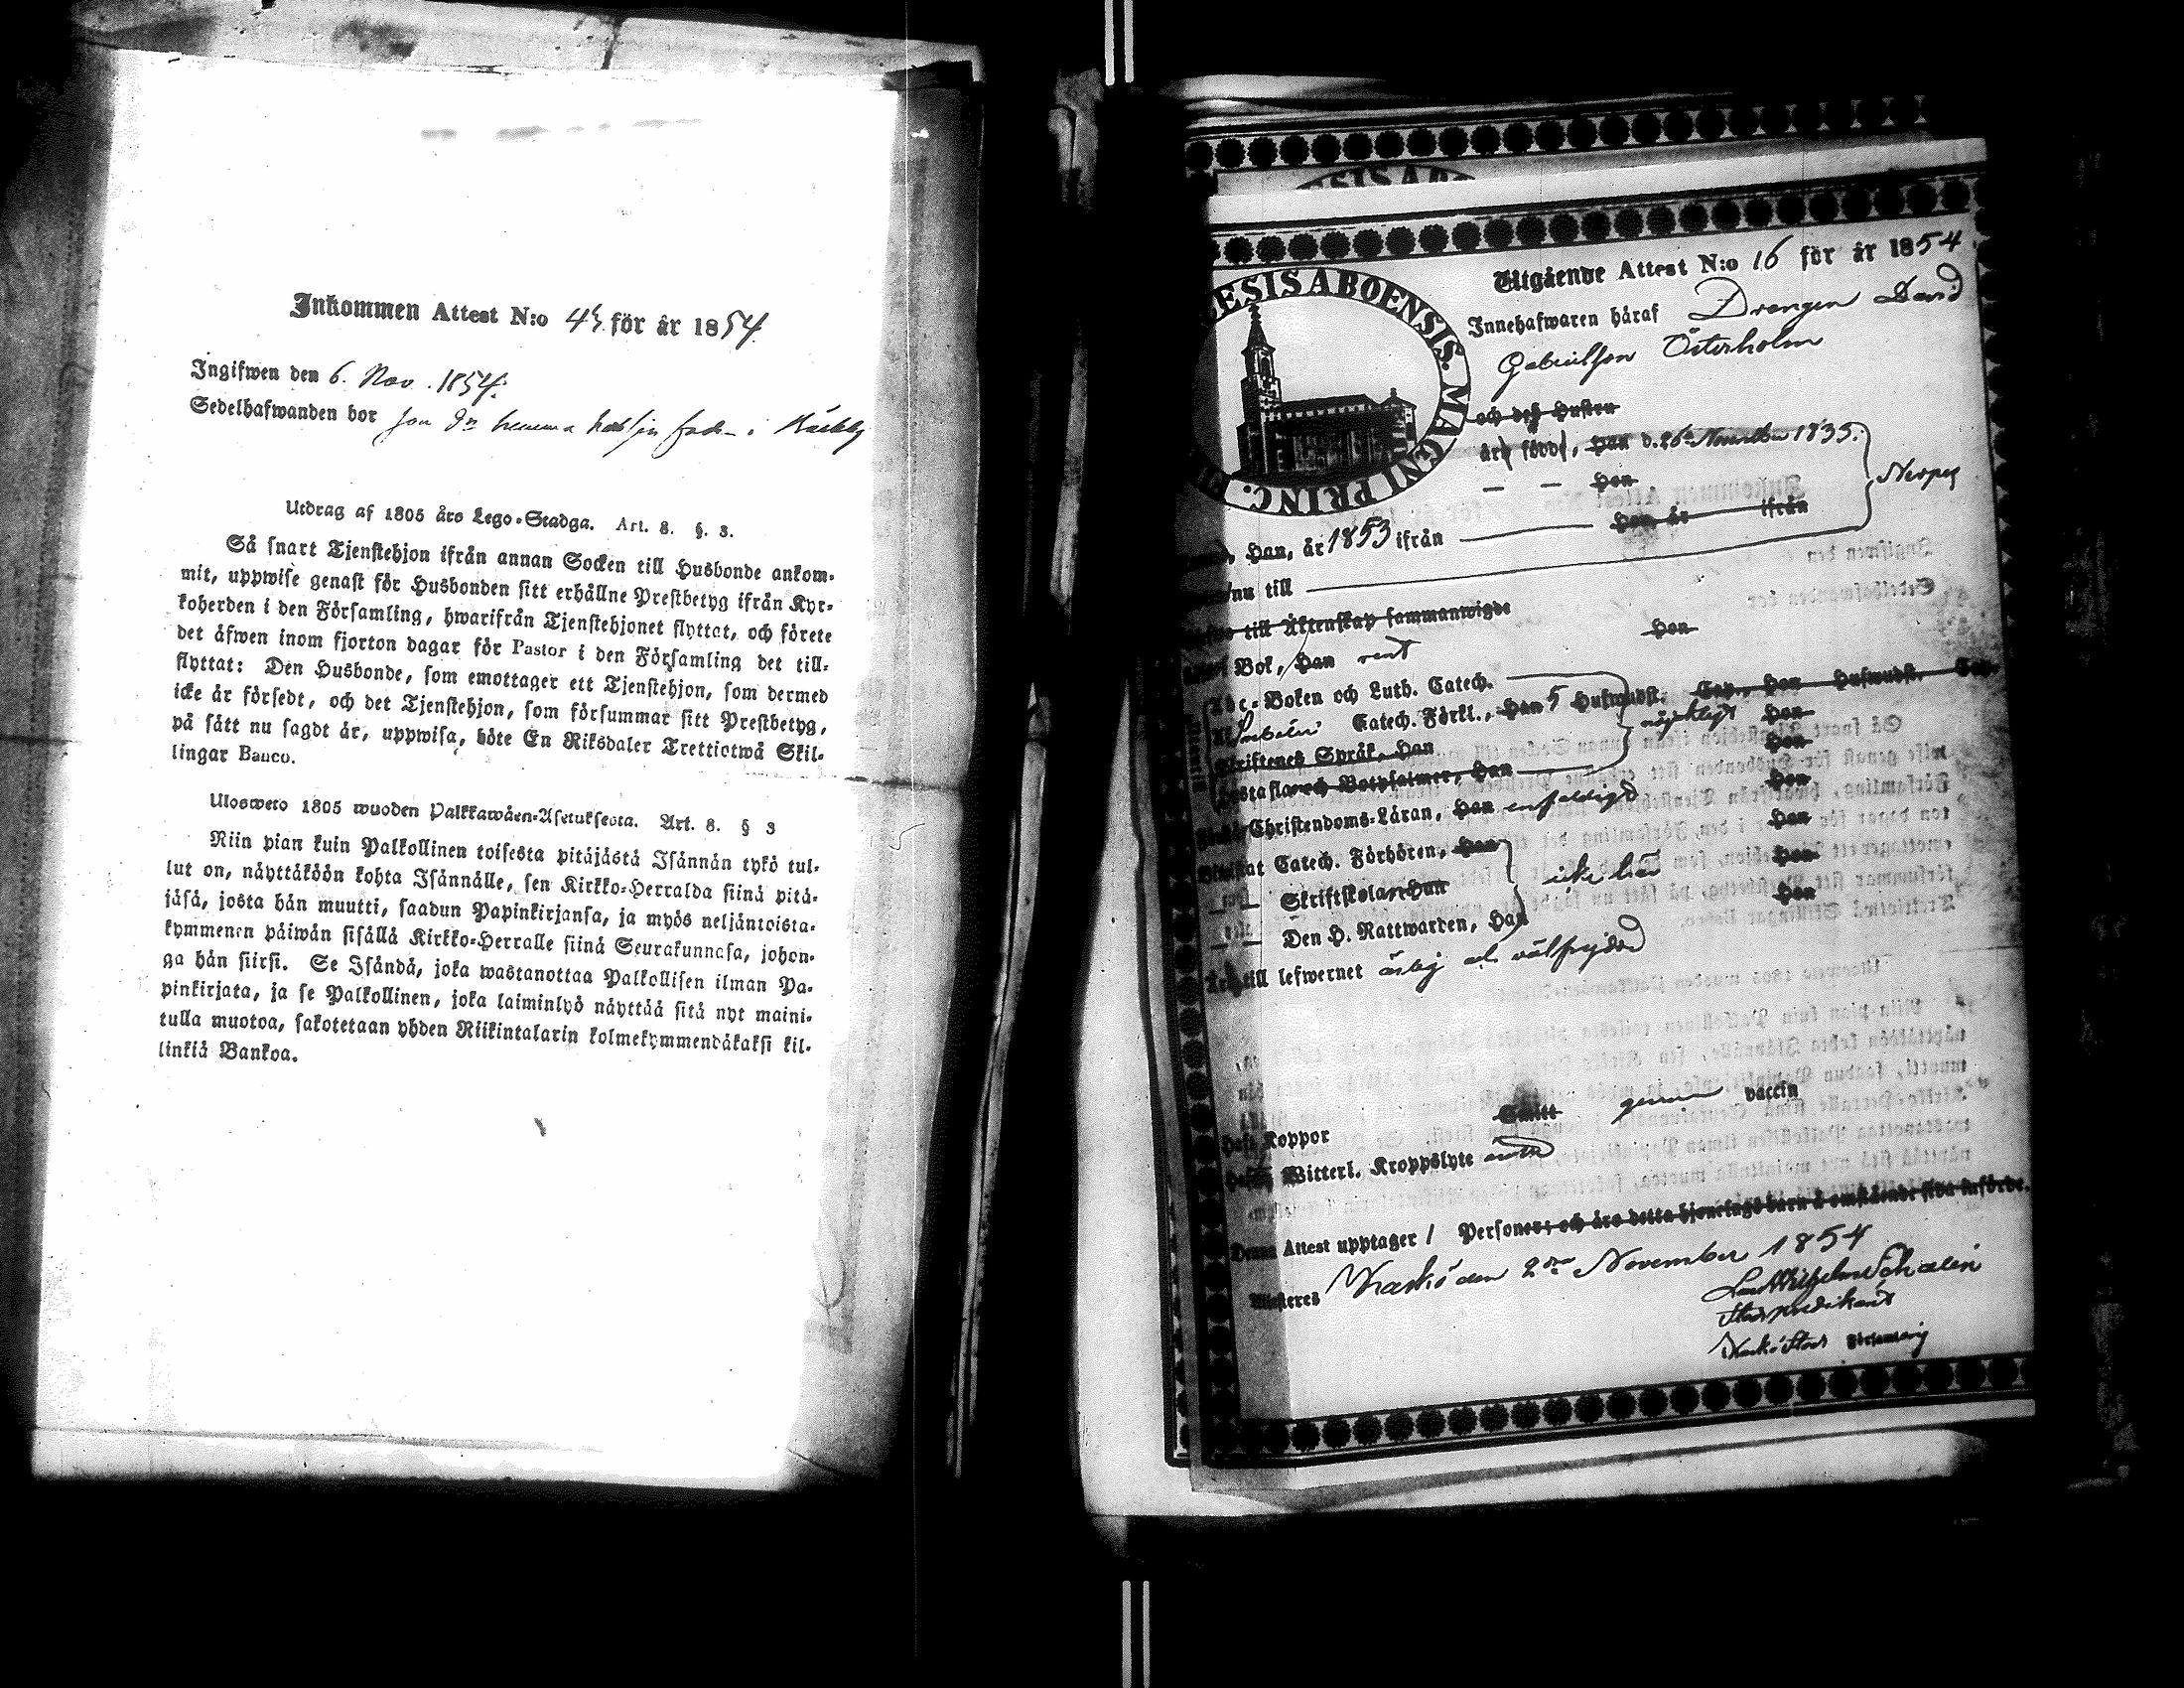 Inkommen Attest N:o 45 för år 1854
Ingifwen den 6. Nov. 1854.
Sedelhafwanden bor hos i
Utdrag af 1805 års Lego-Stadga. Art. 8. §. 3.
Så snart Tjenstehjon ifrån annan Socken till Husbonde ankom-
mit, uppwise genast för Husbonden sitt erhållne Prestbetyg ifrån Kyr-
koherden i den Församling, hwarifrån Tjenstehjonet flyttat, och förete
det äfwen inom fjorton dagar för Pastor i den Församling det till-
flyttat: Den Husbonde, som emottager ett Tjenstehjon, som dermed
icke är försedt, och det Tjenstehjon, som försummar sitt Prestbetyg,
på sätt nu sagdt är, uppwisa, böte En Riksdaler Trettiotwå Skil-
lingar Banco.
Ulosweto 1805 wuoden Palkkawäen-Asetuksesta. Art. 8. § 3
Niin pian kuin Palkollinen toisesta pitäjästä Isännän tykö tul-
lut on, näyttäköön kohta Isännälle, sen Kirkko-Herralda siinä pitä-
jäsä, josta hän muutti, saadun Papinkirjansa, ja myös neljäntoista-
kymmenen päiwän sisällä Kirkko-Herralle siinä Seurakunnasa, johon-
ga hän siirsi. Se Isändä, joka wastanottaa Palkollisen ilman Pa-
pinkirjata, ja se Palkollinen, joka laiminlyö näyttää sitä nyt maini-
tulla muotoa, sakotetaan yhden Riikintalarin kolmekymmendäkaksi kil-
linkiä Bankoa.
ESIS ABOENSIS. MAGNI PRINC.
Utgående Attest N:o 16 för år 1854
Innehafwaren häraf Drengen David
Gabrielsson Österholm
och dess Hustru
är född, Han d. 26 November 1835.
Hon
Nerpes
Han, år 1853 ifrån Hon, år ifrån
nu till
till Äktenskap sammanwigde
Bok, Han rent Hon
Abc-Boken och Luth. Catech.
Catech. Förkl., Han 5 Hufwudst. Cap., Hon Hufwudst. Cap.
nöjaktigt Hon
Skriftenes Språk, Han Hon
och Botpsalmer, Han Hon
Christendoms-Läran, Han enfaldigt Hon
Catech. Förhören, Han Hon
Skriftskolan, Han icke här Hon
Den H. Nattwarden, Han
till lefwernet ärlig och välfrejdad
Haft Koppor Smitt genom vaccin
Witterl. Kroppslyte
Denna Attest upptager 1 Personer; och äro detta hjonelags barn å omstående sida införde.
Kaskö den 2 November 1854
Schalin
Stadspredikant
Kaskö Stads Församling